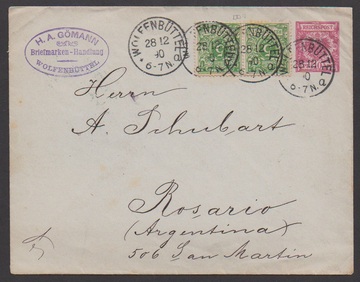 H. A. GÖMANN
Briefmarken-Handlung
WOLFENBÜTTEL
WOLFENBÜTTEL
28 12
6-7N.
WOLFENBÜTTEL
WOLFENBÜTTEL
28 12
6-7N.
REICHSPOST
Herrn
A. Schubart
Rosario
(Argentina)
506 San Martin